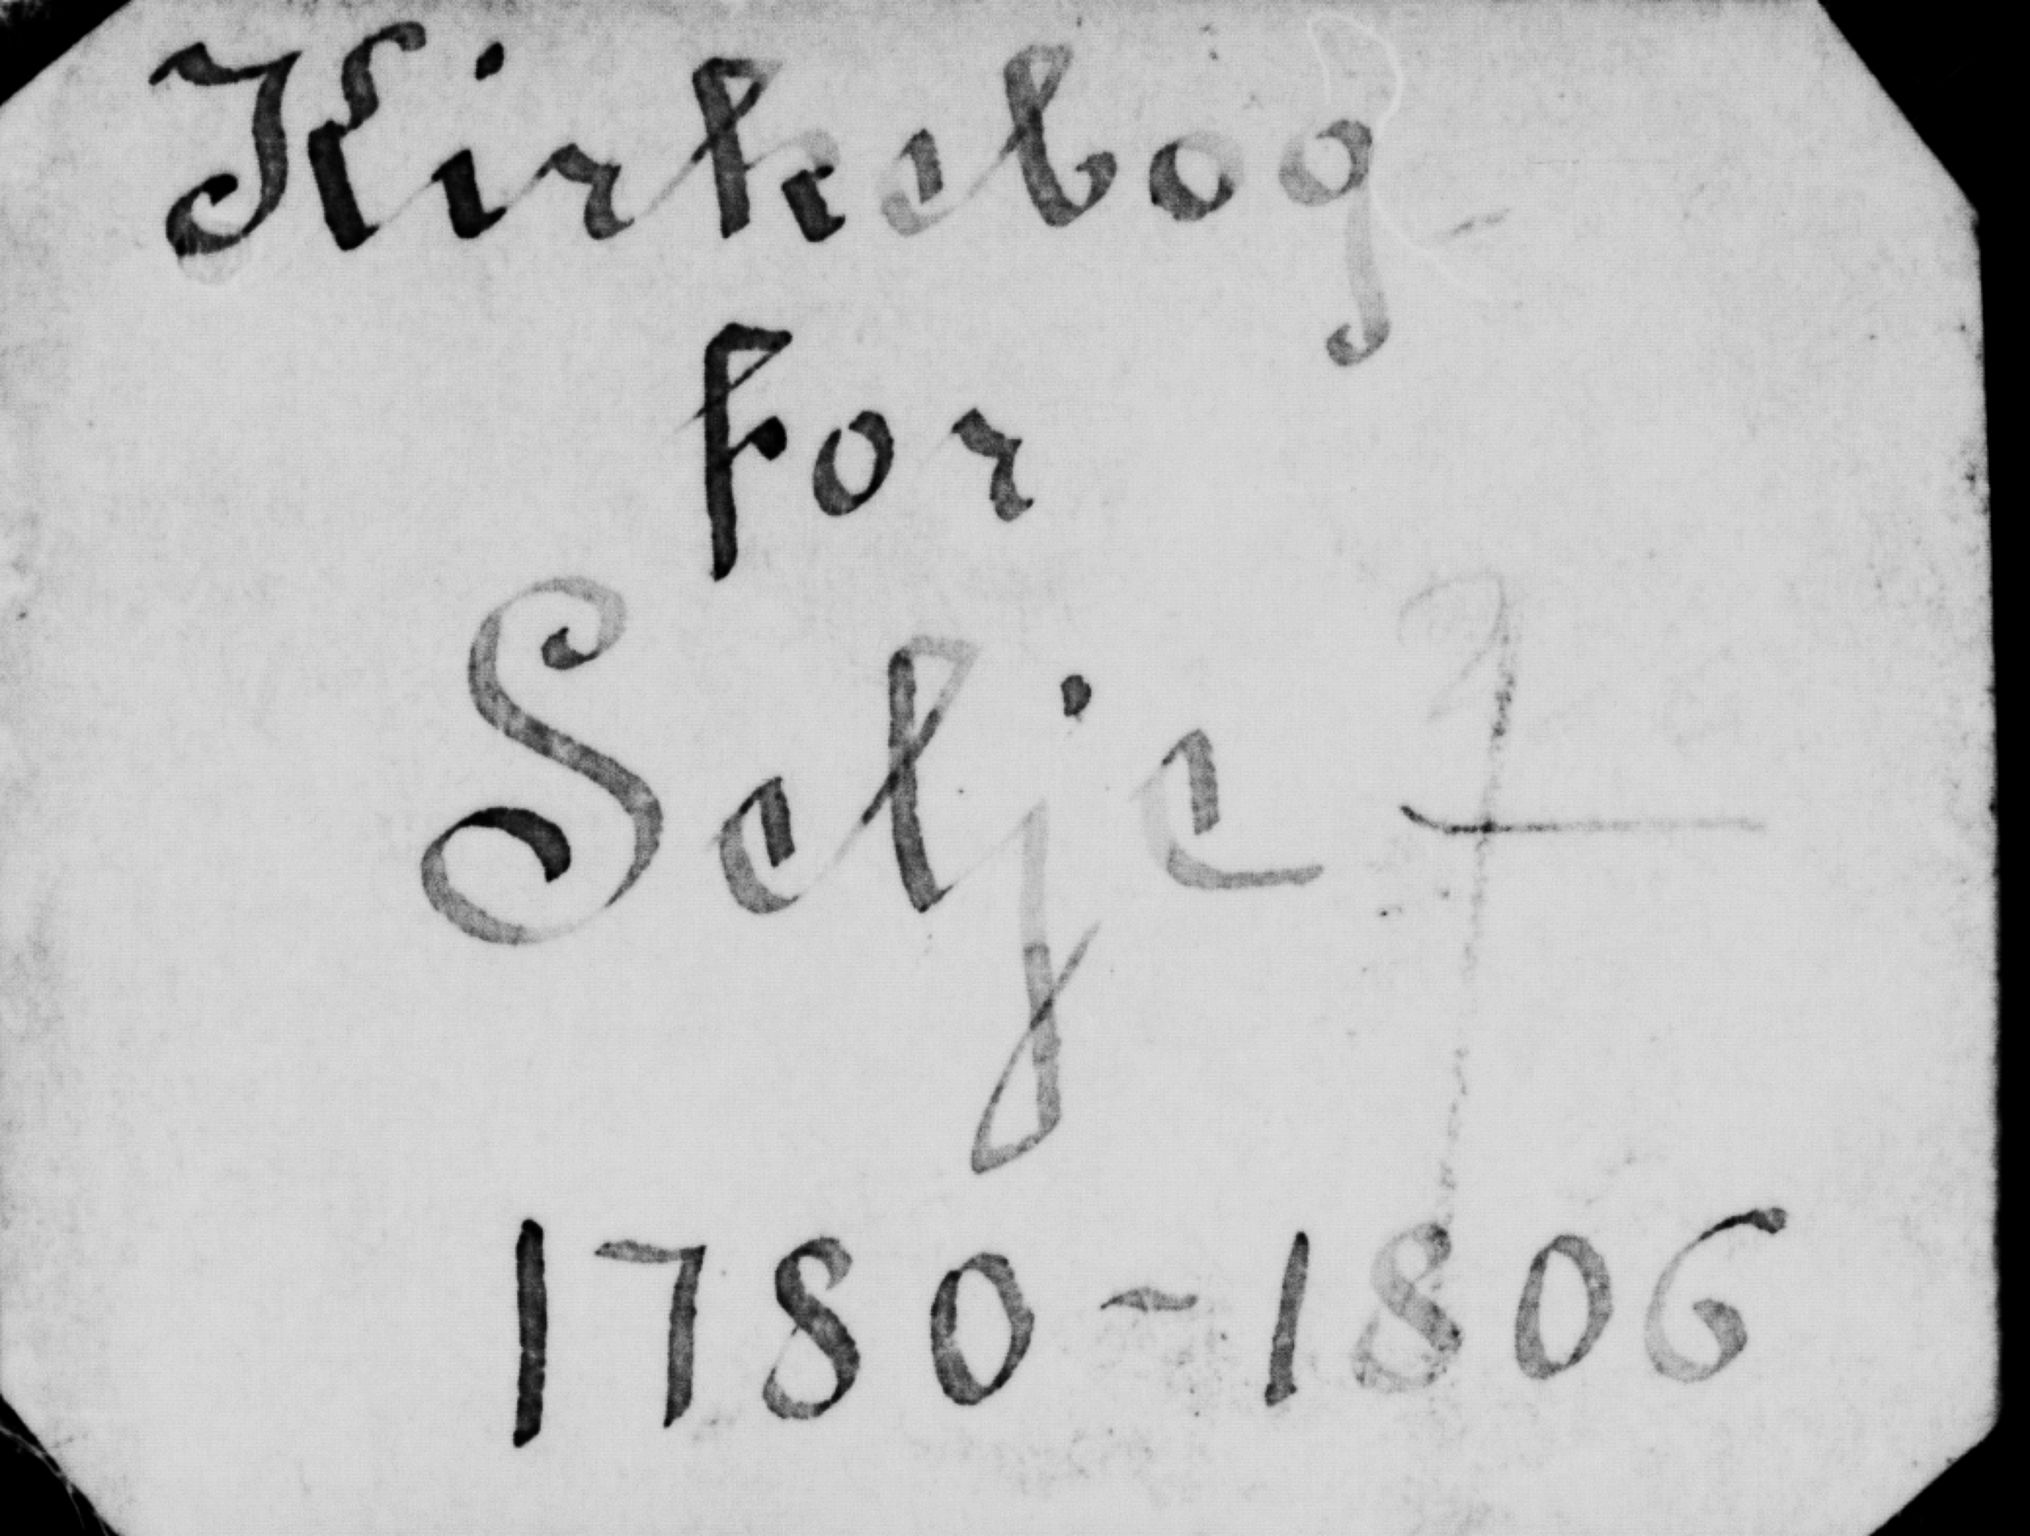 Kirkebog
for
Selje
1780-1806